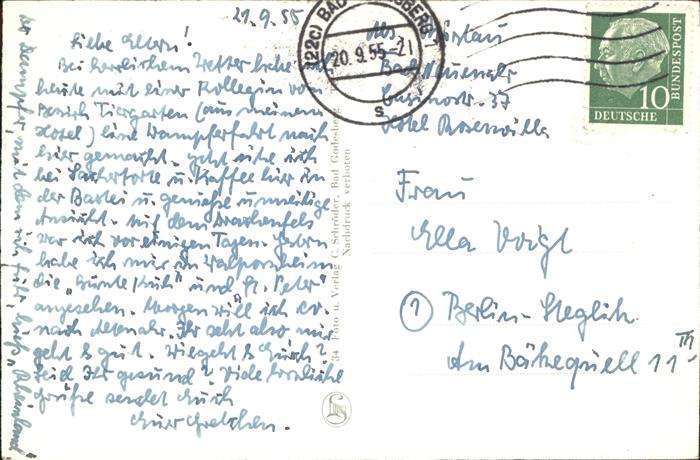 21.9.55
Liebe Eltern!
Bei herrlichem Wetter habe ich
heute mit einer Kollegin vom
Bezirk Tiergarten (aus meinem
Hotel) eine Dampferfahrt nach
hier gemacht. Jetzt sitze ich
bei Sachertorte u. Kaffee hier in
der Bastei u. genieße
Aussicht. Auf dem Drachenfels
war ich vor einigen Tagen. Gestern
habe ich mir in Walporzheim
die „Bunte Kuh" und St. Peter
angesehen. Morgen will ich ev.
nach Altenahr. Ihr seht also mir
geht's gut. Wie geht's Euch?
Seid Ihr gesund? Viele herzliche
Grüße sendet Euch
Eure Gretchen.
Der Dampfer, mit dem ich fuhr, hieß „Rheinland"
34 Foto u. Verlag C. Schröder, Bad Godesberg
Nachdruck verboten
(22c) BAD GODESBERG 1
20.9.55-21
s
Abs.
Bad Neuenahr
Casinostr. 37
Hotel Rosenvilla
DEUTSCHE BUNDESPOST
10
Frau
Ella Voigt
(1) Berlin-Steglitz
Am Bäkequell 11 III